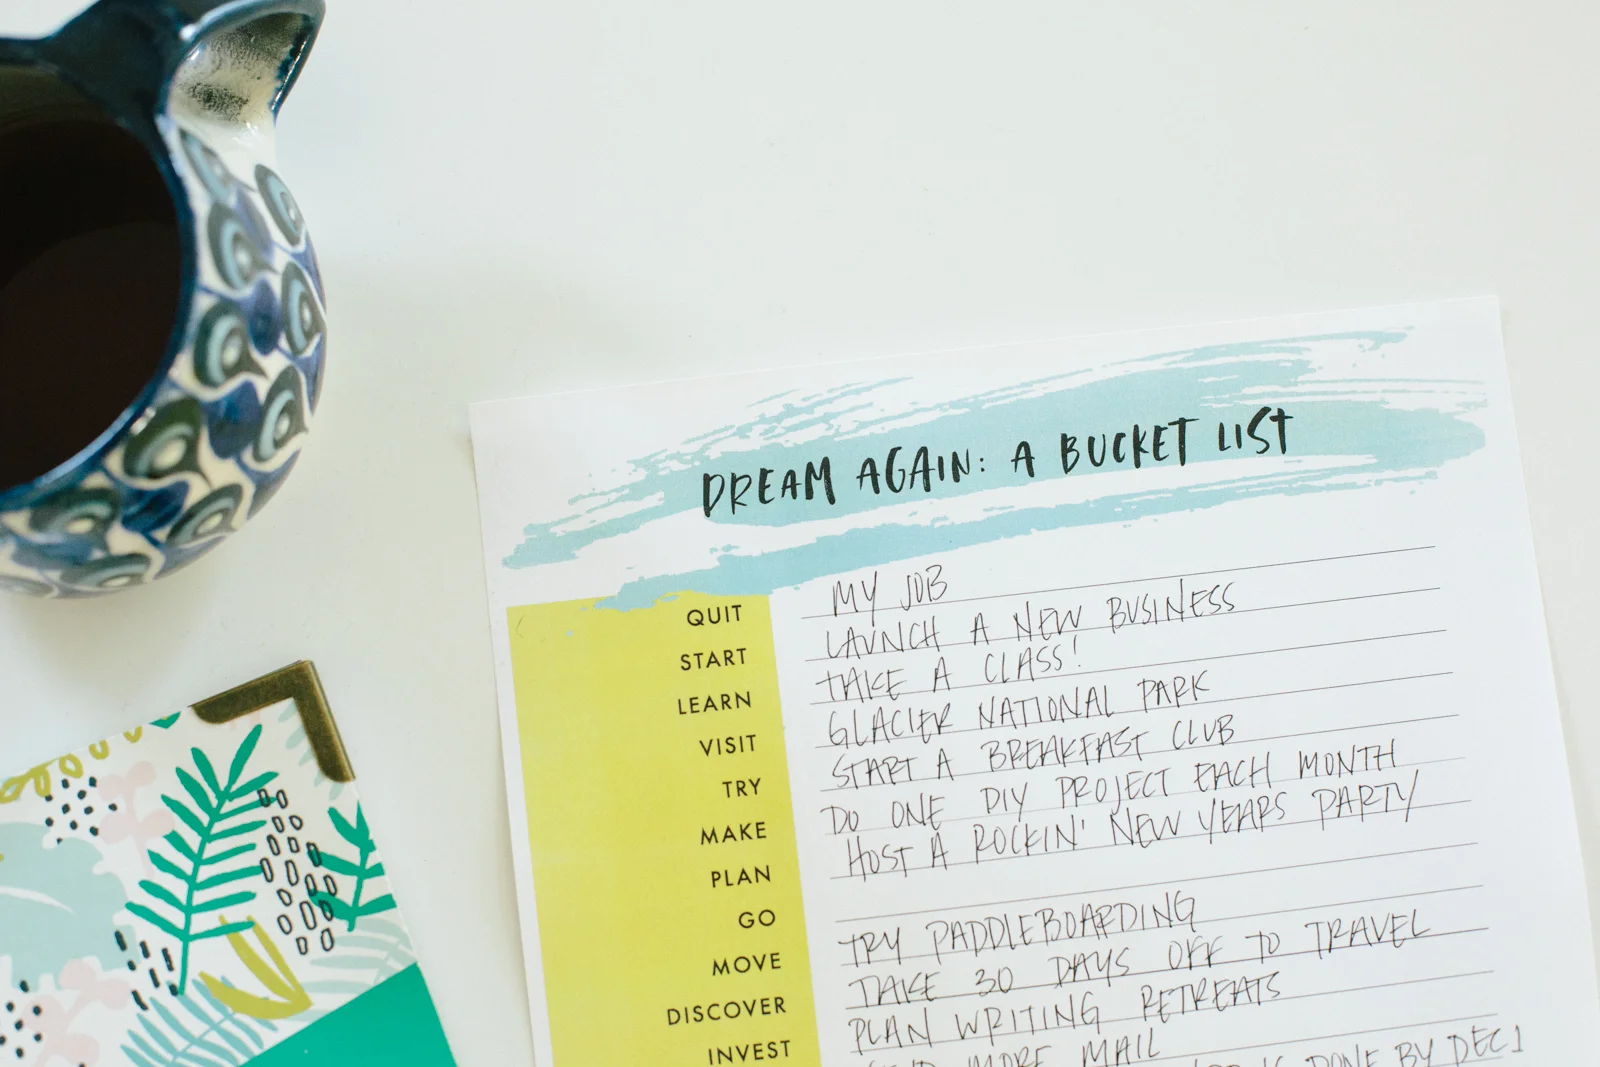 DREAM AGAIN: A BUCKET LIST
QUIT MY JOB
START LAUNCH A NEW BUSINESS
LEARN TAKE A CLASS!
VISIT GLACIER NATIONAL PARK
TRY START A BREAKFAST CLUB
MAKE DO ONE DIY PROJECT EACH MONTH
PLAN HOST A ROCKIN' NEW YEARS PARTY
GO
MOVE TRY PADDLEBOARDING
DISCOVER TAKE 30 DAYS OFF TO TRAVEL
INVEST PLAN WRITING RETREATS
MORE MAIL
IS DONE BY DEC 1